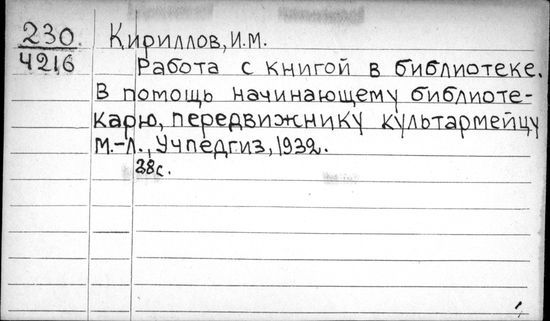 230. Кириллов, И.М.
4216 Работа с книгой в библиотеке.
В помощь начинающему библиоте-
карю, передвижнику культармейцу
М.-Л., Учпедгиз, 1932.
38с.